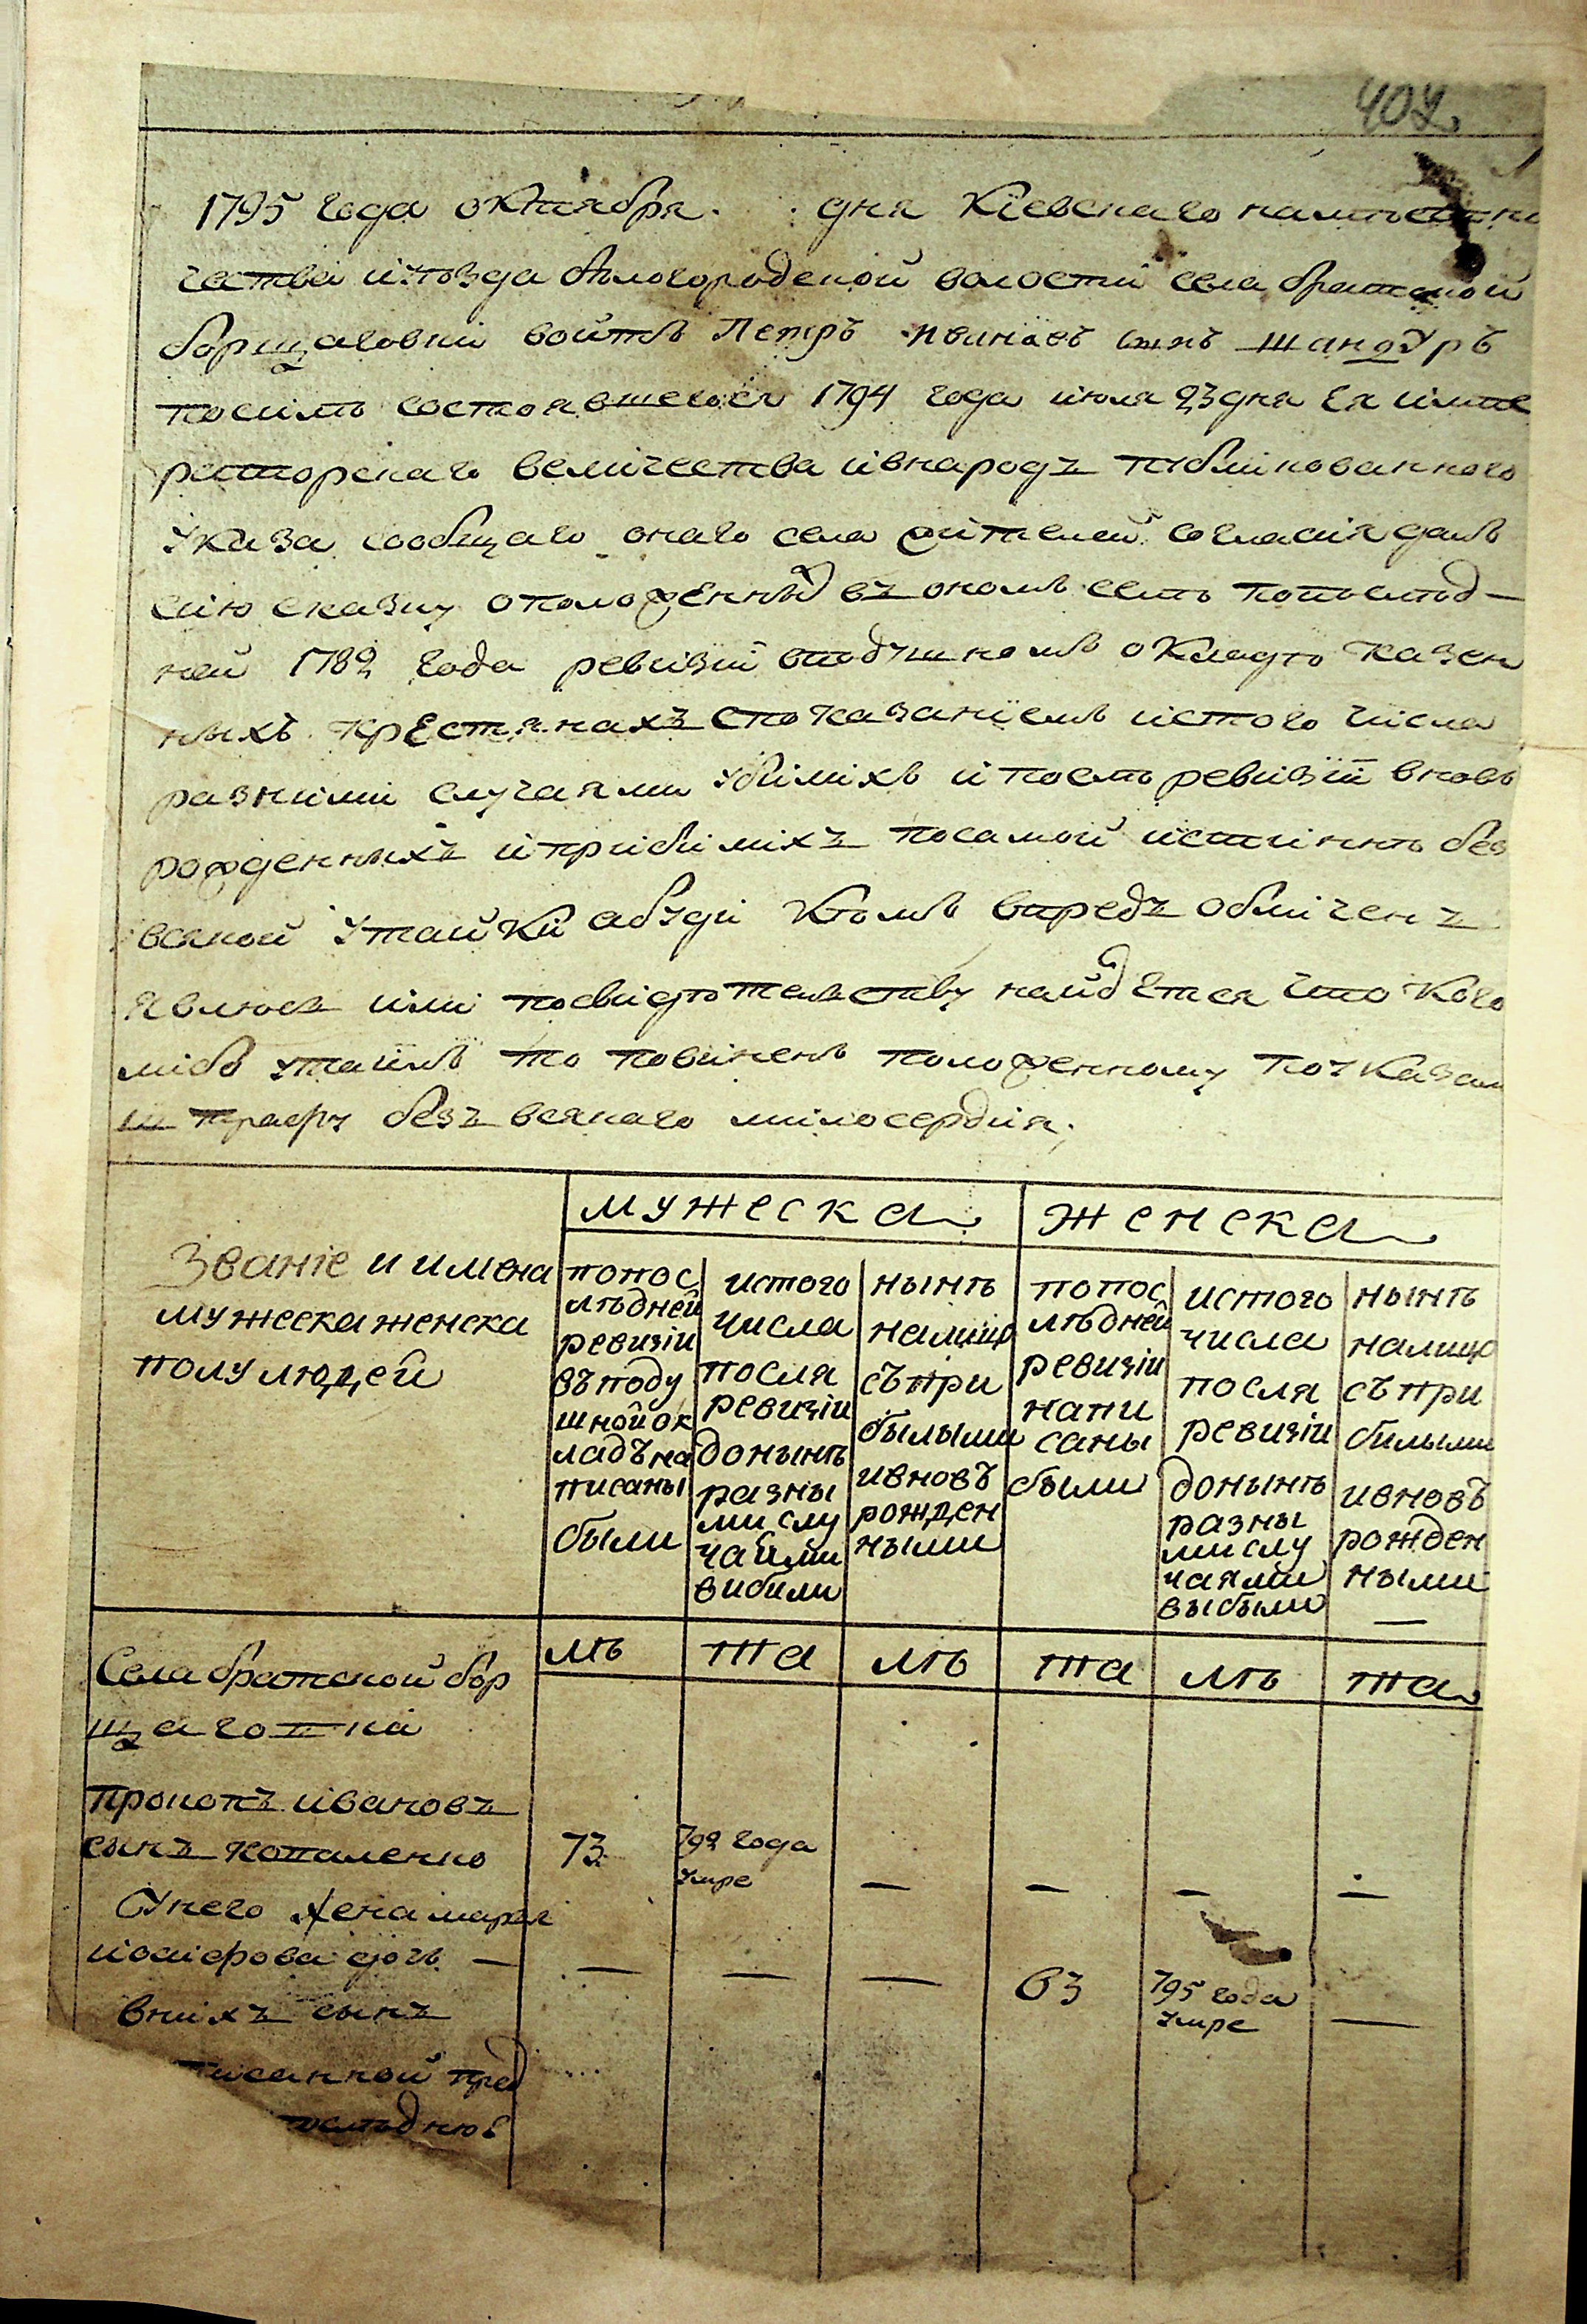 407.
1795 года октября . . дня Кіевскаго наместни
чества иуезда белогородской волости села братской
борщаговки войтъ Петръ ивановъ сынъ шандуръ
посилѣ состоявшегося 1794 года июня 23 дня Ея импе
раторскаго величества ивнародъ публикованного
указа сообщаго онаго села жителей согласія далъ
сию сказку оположенныхъ въ ономъ селѣ попослѣд
ней 1782 года ревизіи вподушномъ окладѣ казен
ныхъ крестянахъ спочазаніемъ истого числа
разними случаями убиліхъ ипослѣ ревизіи вновъ
рожденныхъ иприбиліхъ посамой истиннѣ без
всякой утайки абуди кемъ впредъ обличенъ
явлюсъ или посвидѣтельству найдется что кого
либо утаилъ то повиненъ положенному поуказам
штрафу безъ всякаго милосердия.
мужеска женска
Званіе и имена
мужеска женска
полу людей
попос
лѣдней
ревизіи
въ поду
шной ок
ладъ на
писаны
были
истого
числа
посля
ревизіи
донынѣ
разны
ми слу
чаями
вибили
нынѣ
налицо
съ при
былыми
ивновъ
рожден
ными
попос
лѣдней
ревизіи
напи
саны
были
истого
числа
посля
ревизіи
донынѣ
разны
ми слу
чаями
выбыли
нынѣ
налицо
съ при
билыми
ивновъ
рожден
ными
лѣ та лѣ та лѣ та
Села братской бор
щаговки
Прокопъ ивановъ
сынъ копаленко 73 792 года
умре — — — —
Унего жена марья
иосифова дочь — — — — 63 795 года
умре —
внихъ сынъ
писанной пред
послѣднюю